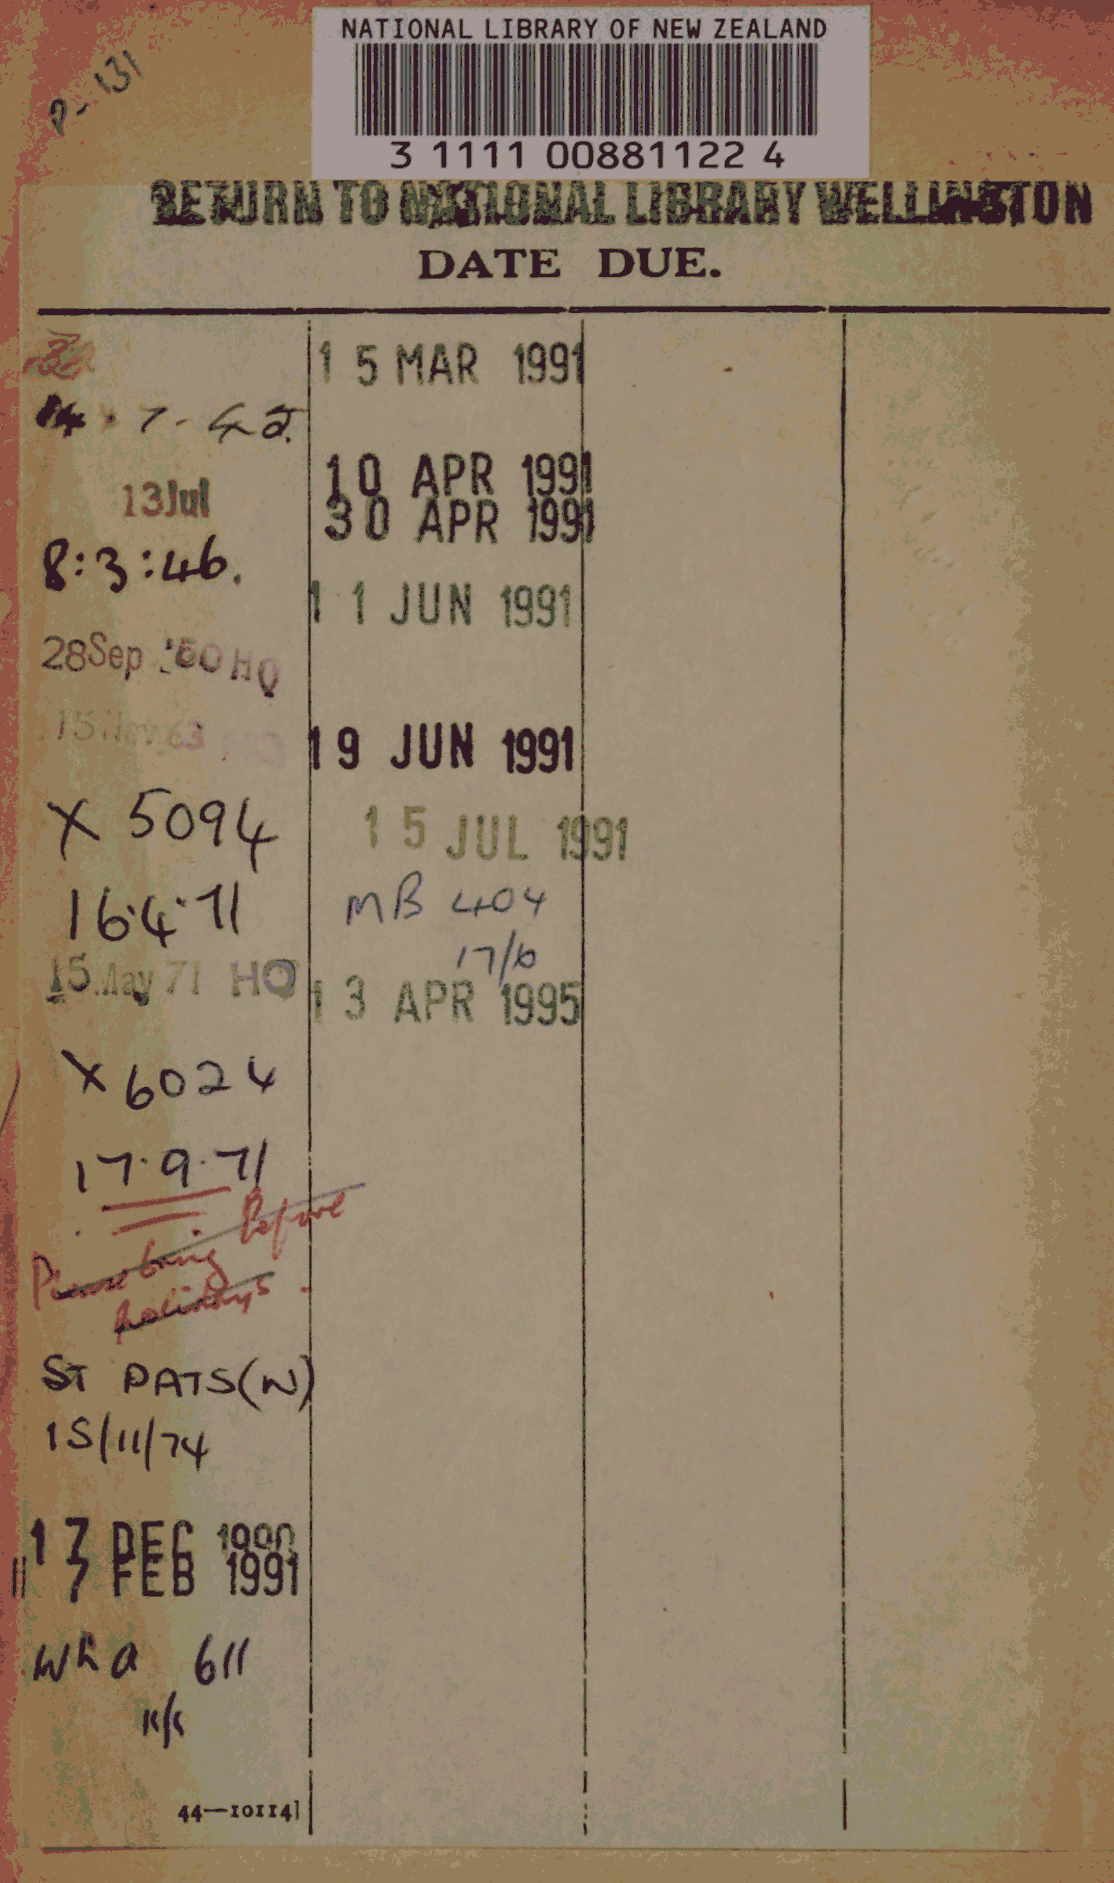 P-131
NATIONAL LIBRARY OF NEW ZEALAND
3 1111 00881122 4
RETURN TO NATIONAL LIBRARY WELLINGTON
DATE DUE.
7-42.
13Jul
8:3:46.
28Sep '60 HQ
15 Nov 63
X 5094
16.4.71
15 May 71 HQ
X 6024
17.9.71
Please bring Before
holidays.
ST PATS(W)
15/11/74
17 DEC 1990
7 FEB 1991
wha 611
44—10114]
15 MAR 1991
10 APR 1991
30 APR 1991
11 JUN 1991
19 JUN 1991
15 JUL 1991
MB 404
17/6
13 APR 1995